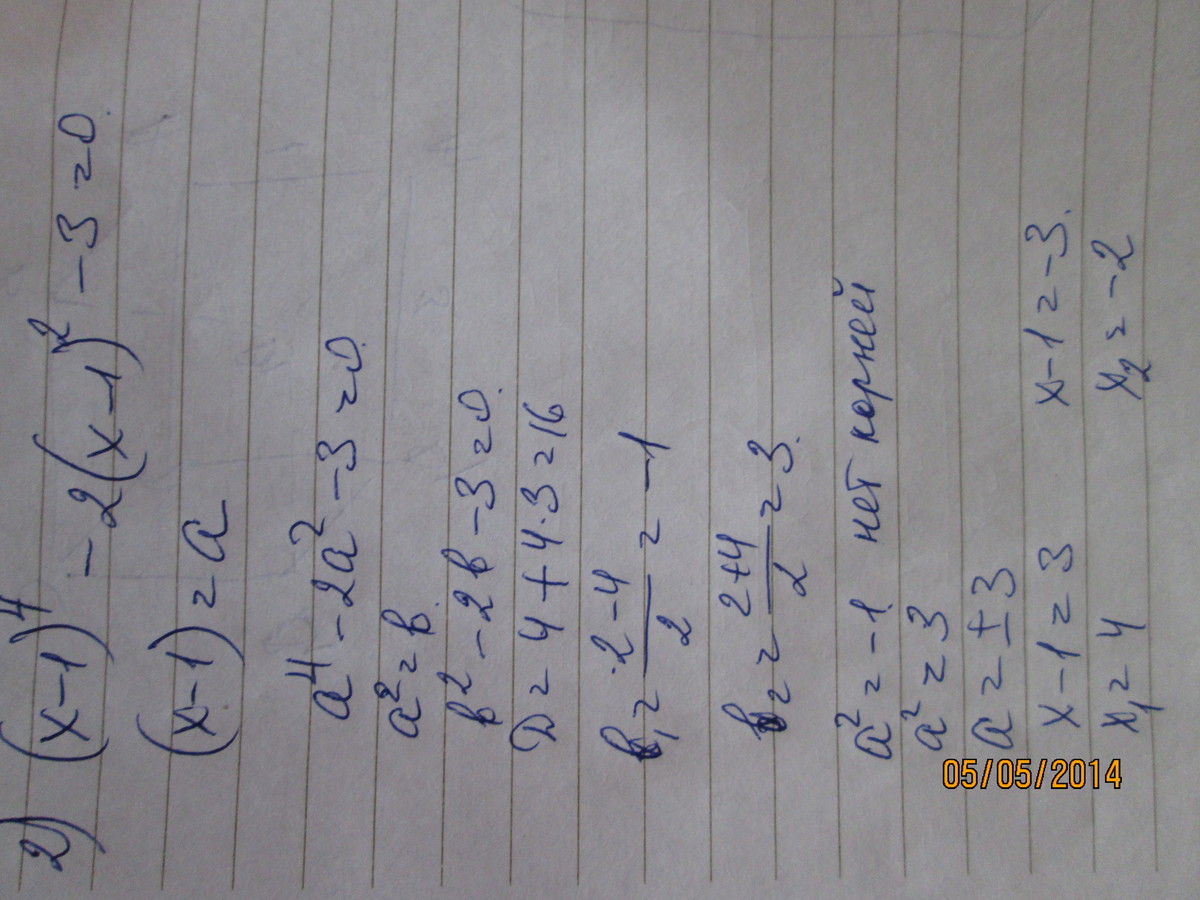 2) (x-1)⁴ - 2(x-1)² - 3 = 0.
(x-1) = a
a⁴ - 2a² - 3 = 0.
a² = b.
b² - 2b - 3 = 0.
D = 4 + 4·3 = 16
b₁ = (2-4)/2 = -1
b₂ = (2+4)/2 = 3.
a² = -1 нет корней
a² = 3
a = ±3
x-1 = 3 x-1 = -3.
x₁ = 4 x₂ = -2
05/05/2014